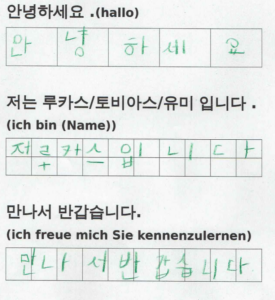 안녕하세요 .(hallo)
안 녕 하 세 요
저는 루카스/토비아스/유미 입니다 .
(ich bin (Name))
저 르 카 스 입 ㄴ ㅣ ㄷ ㅏ
만나서 반갑습니다.
(ich freue mich Sie kennenzulernen)
만 나 서 반 갑 습 니 다